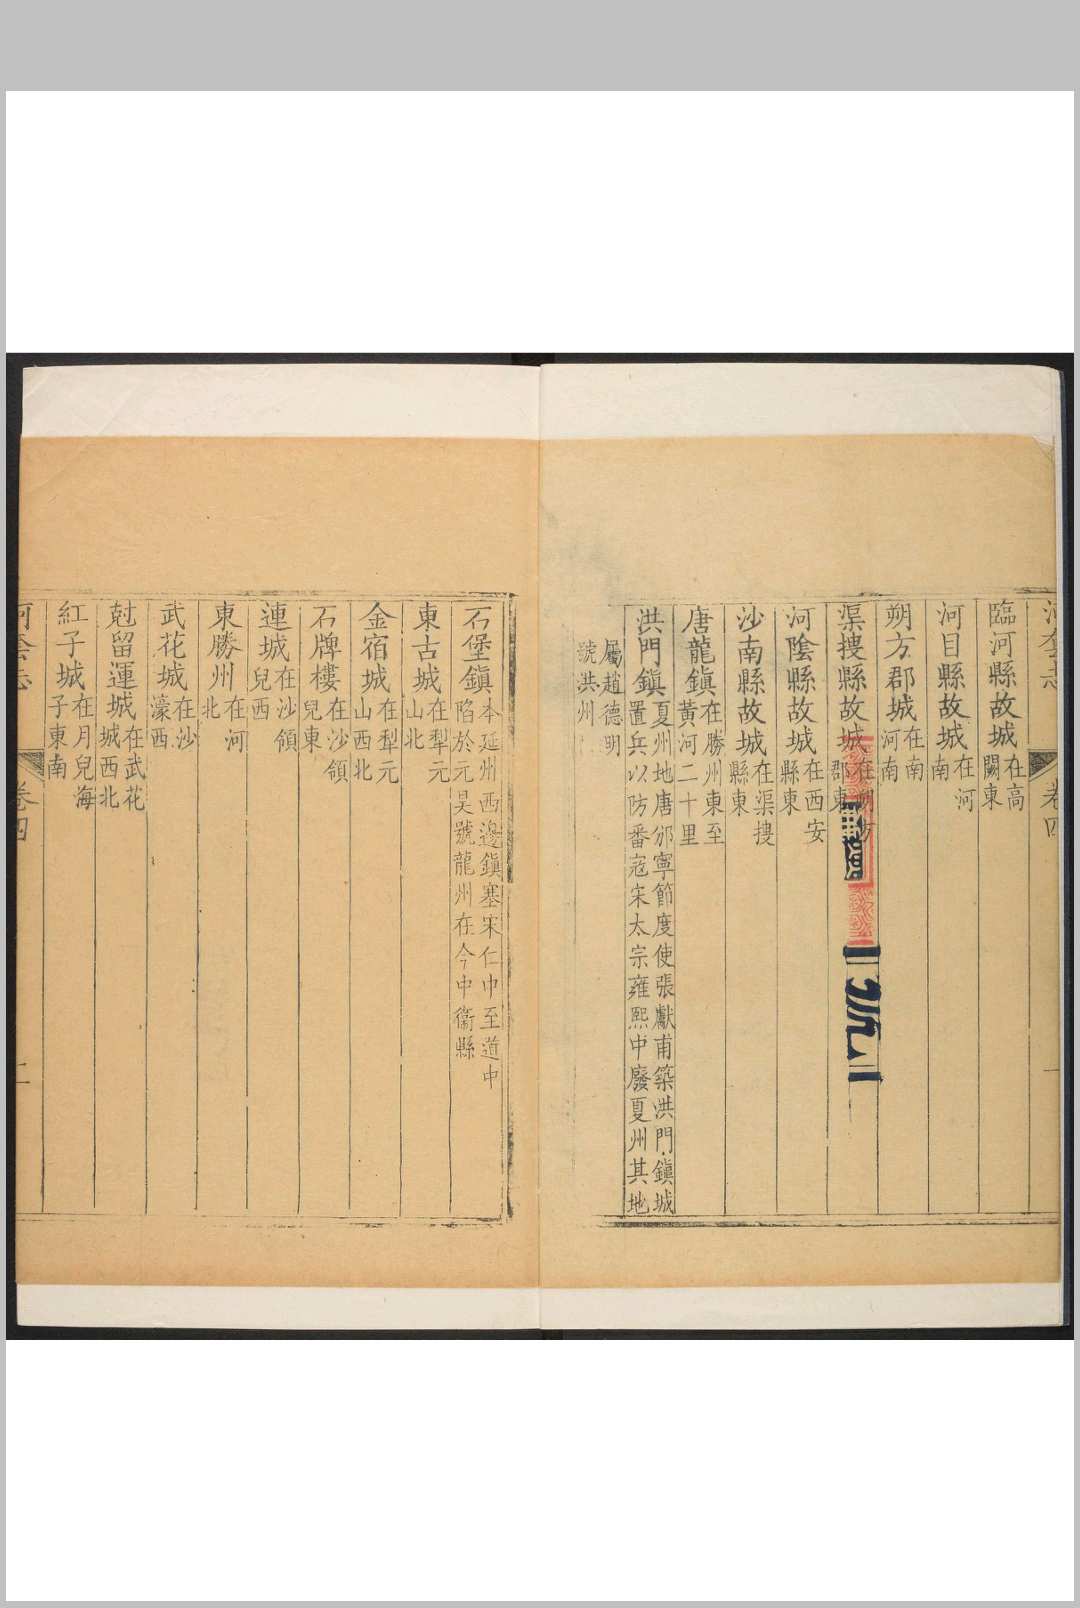 河套志
卷四
一
臨河縣故城在高闕東
河目縣故城在河南
朔方郡城在南河南
渠搜縣故城在朔方郡東
河陰縣故城在西安縣東
沙南縣故城在渠搜縣東
唐龍鎮在勝州東至黃河二十里
洪門鎮夏州地唐邠寧節度使張獻甫築洪門鎮城置兵以防番宼宋太宗雍熙中廢夏州其地
屬趙德明號洪州
石堡鎮本延州西邊鎮塞宋仁中至道中陷於元昊號龍州在今中衞縣
東古城在犁元山北
金宿城在犁元山西北
石牌樓在沙領兒東
連城在沙領兒西
東勝州在河北
武花城在沙濠西
尅留運城在武花城西北
紅子城在月兒海子東南
河套志
卷四
二